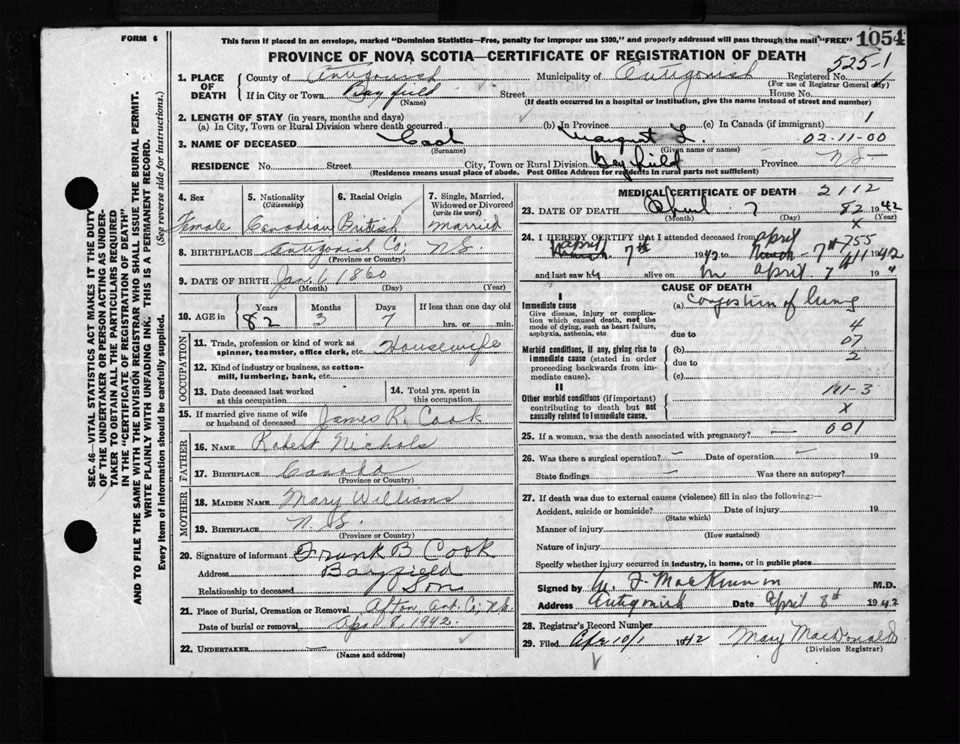 FORM 6
This form if placed in an envelope, marked "Dominion Statistics—Free, penalty for improper use $300," and properly addressed will pass through the mail "FREE"
1054
PROVINCE OF NOVA SCOTIA—CERTIFICATE OF REGISTRATION OF DEATH
525-1
1. PLACE OF DEATH
County of Antigonish Municipality of Antigonish Registered No.
(For use of Registrar General only)
If in City or Town Bayfield Street House No.
(Name) (If death occurred in a hospital or institution, give the name instead of street and number)
2. LENGTH OF STAY (in years, months and days)
(a) In City, Town or Rural Division where death occurred (b) In Province (c) In Canada (if immigrant) 1
3. NAME OF DECEASED Cook Margaret L. 02-11-00
(Surname) (Given name or names)
RESIDENCE No. Street City, Town or Rural Division Bayfield Province N.S.
(Residence means usual place of abode. Post Office Address for residents in rural parts not sufficient)
4. Sex Female
5. Nationality (Citizenship) Canadian
6. Racial Origin British
7. Single, Married, Widowed or Divorced (write the word) Married
8. BIRTHPLACE Antigonish Co. N.S.
(Province or Country)
9. DATE OF BIRTH Jan. 6 1860
(Month) (Day) (Year)
10. AGE in Years 82 Months 3 Days 7 If less than one day old hrs. or min.
OCCUPATION
11. Trade, profession or kind of work as spinner, teamster, office clerk, etc. Housewife
12. Kind of industry or business, as cotton-mill, lumbering, bank, etc.
13. Date deceased last worked at this occupation
14. Total yrs. spent in this occupation
15. If married give name of wife or husband of deceased James R. Cook
FATHER
16. NAME Robert Nichols
17. BIRTHPLACE Canada
(Province or Country)
MOTHER
18. MAIDEN NAME Mary Williams
19. BIRTHPLACE N.S.
(Province or Country)
20. Signature of informant Frank B Cook
Address Bayfield
Relationship to deceased Son
21. Place of Burial, Cremation or Removal Afton, Ant. Co., N.S.
Date of burial or removal Apr. 8, 1942.
22. UNDERTAKER —
(Name and address)
MEDICAL CERTIFICATE OF DEATH 2112
23. DATE OF DEATH April 7 82 1942
(Month) (Day) (Year)
X
24. I HEREBY CERTIFY that I attended deceased from April 755
April 7th 1942 April 7th 1942
and last saw h alive on April 7th 19
CAUSE OF DEATH
Immediate cause
Give disease, injury or complication which caused death, not the mode of dying, such as heart failure, asphyxia, asthenia, etc
(a) Congestion of lung
4
due to
07
Morbid conditions, if any, giving rise to immediate cause (stated in order proceeding backwards from immediate cause).
(b)
due to 2
(c)
Other morbid conditions (if important) contributing to death but not causally related to immediate cause.
X
25. If a woman, was the death associated with pregnancy? — 001
26. Was there a surgical operation? — Date of operation — 19
State findings — Was there an autopsy?
27. If death was due to external causes (violence) fill in also the following:—
Accident, suicide or homicide? Date of injury 19
(State which)
Manner of injury
(How sustained)
Nature of injury
Specify whether injury occurred in industry, in home, or in public place
Signed by MacKinnon M.D.
Address Antigonish Date April 8th 1942
28. Registrar's Record Number
29. Filed Apr. 10/1 1942 Mary MacDonald
(Division Registrar)
SEC. 46—VITAL STATISTICS ACT MAKES IT THE DUTY OF THE UNDERTAKER OR PERSON ACTING AS UNDERTAKER TO OBTAIN ALL THE PARTICULARS REQUIRED IN THE "CERTIFICATE OF REGISTRATION OF DEATH" AND TO FILE THE SAME WITH THE DIVISION REGISTRAR WHO SHALL ISSUE THE BURIAL PERMIT.
WRITE PLAINLY WITH UNFADING INK. THIS IS A PERMANENT RECORD.
Every item of information should be carefully supplied. (See reverse side for instructions.)